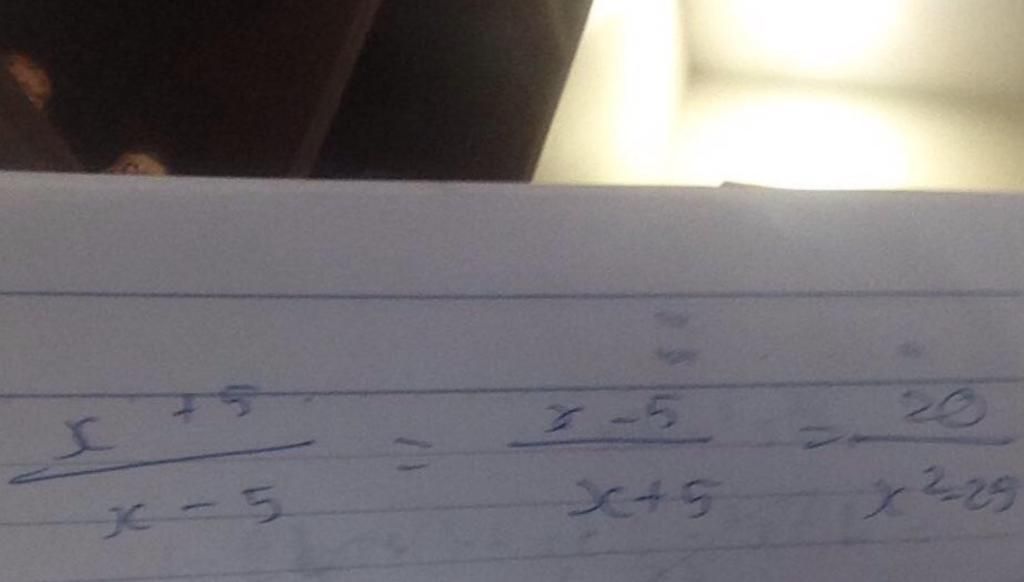 x + 5 / x - 5 = x - 5 / x + 5 = 20 / x² - 25